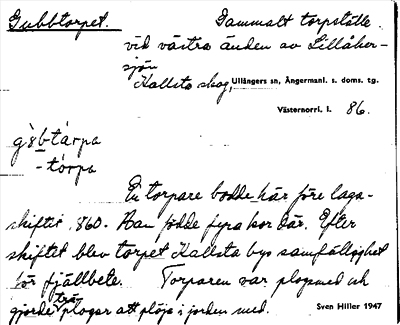 Gubbtorpet. Gammalt torpställe
vid västra änden av Lillåker-
sjön
Kallsta skog, Ullångers sn, Ångermanl. s. doms. tg.
Västernorrl. l. 86.
En torpare bodde här före laga-
skiftet 1860. Han födde fyra kor där. Efter
skiftet blev torpet Kallsta bys samfällighet
för fjällbete. Torparen var plogsmed och
gjorde träplogar att plöja i jorden med. Sven Hiller 1947